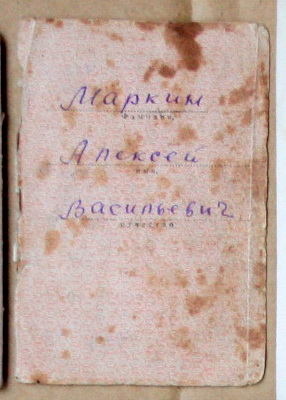 Маркин
фамилия
Алексей
имя
Васильевич
отчество